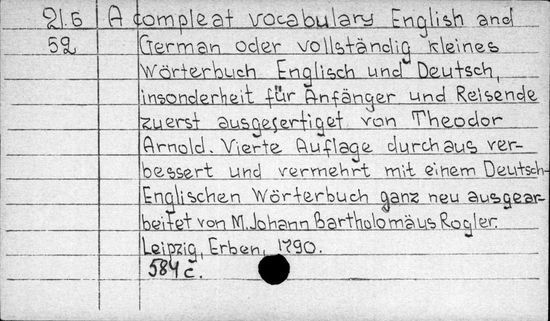 21.6 A compleat vocabulary English and
52 German oder vollständig kleines
Wörterbuch Englisch und Deutsch,
insonderheit für Anfänger und Reisende
zuerst ausgefertiget von Theodor
Arnold. Vierte Auflage durchaus ver-
bessert und vermehrt mit einem Deutsch-
Englischen Wörterbuch ganz neu ausgear-
beitet von M. Johann Bartholomäus Rogler.
Leipzig, Erben, 1790.
584 c.